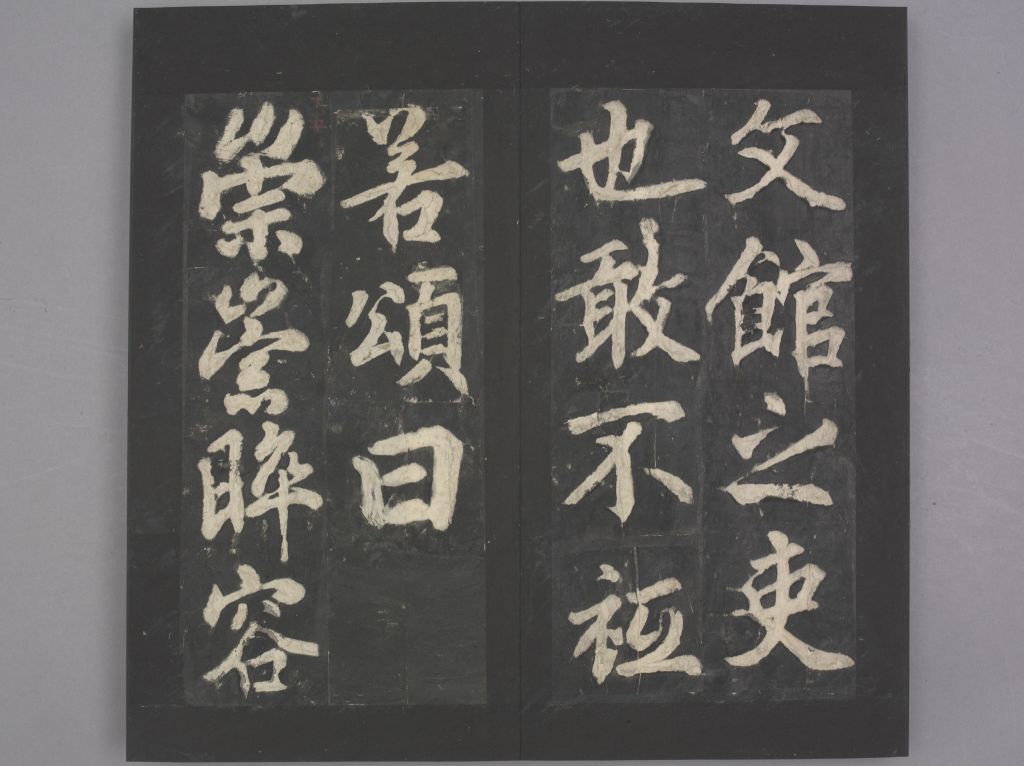 文館之吏
也敢不祗
若頌曰
崇崇睟容